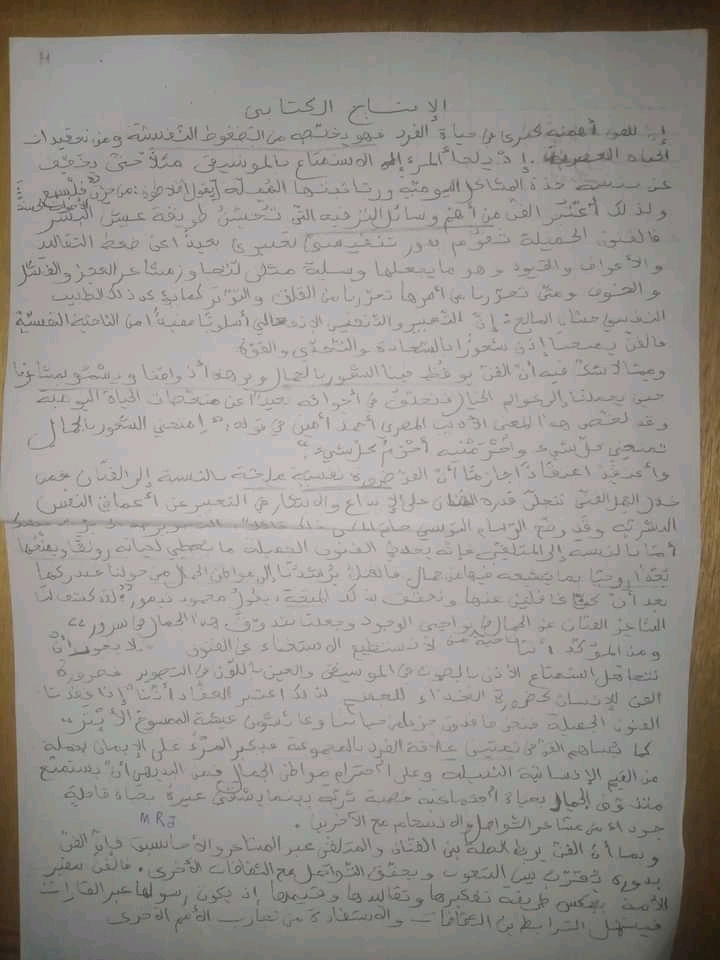 الإنتاج الكتابي
إن للفن أهمية كبرى في حياة الفرد فهو يخلّصه من الضغوط النفسية ومن تعقيدات
الحياة العصرية. إذ يلجأ المرء إلى الاستمتاع بالموسيقى مثلا حتى يخفّف
عن نفسه حدّة المشاكل اليومية ورتابتها المملة
ولذلك أعتبر الفن من أهم وسائل الترفيه التي تحسّن طريقة عيش البشر
فالفنون الجميلة تقوم بدور تنفيسي تعبيري بعيدا عن ضغط التقاليد
والأعراف والقيود وهو ما يجعلها وسيلة مثلى لتجاوز مشاعر العجز والفشل
والخوف ومتى تحررنا من أسرها تحررنا من القلق والتوتر كما يؤكد ذلك الطبيب
النفسي حسان المالح: إنّ التعبير والتنفيس الانفعالي أسلوبا مفيدا من الناحية النفسية
فالفن يمنحنا إذن شعورا بالسعادة والتحدّي والقوة
ومما لا شك فيه أن الفن يوقظ فينا الشعور بالجمال ويرهف أذواقنا ويسمو بمشاعرنا
حين يحملنا إلى عوالم الخيال فنحلّق في أجوائه بعيدا عن منغصات الحياة اليومية
وقد لخص هذا المعنى الأديب المصري أحمد أمين في قوله: "امنحني الشعور بالجمال
تمنحني كلّ شيء واحرمنيه أحرم كلّ شيء"
وأعتقد اعتقادا جازما أنّ الفن ضرورة نفسية ملحة بالنسبة إلى الفنّان فمن
خلال العمل الفني تتجلّى قدرة الفنان على الإبداع والابتكار في التعبير عن أعماق النفس
البشرية وقد وضّح الرسام التونسي
أمّا بالنسبة إلى المتلقي فإنه يجد في الفنون الجميلة ما يعطي لحياته رونقا ويمنحها
بُعدا روحيا بما يشيعه فيها من جمال فالفنان يرشدنا إلى مواطن الجمال من حولنا فندركها
بعد أن كنّا غافلين عنها وتحقق لذلك المتعة، يقول محمود تيمور: "لقد كشف لنا
الشاعر الفنان عن الجمال في نواحي الوجود وجعلنا نتذوق هذا الجمال في سرور"
ومن المؤكّد أننا لا نستطيع الاستغناء عن الفنون لا يعقل أن
نتجاهل استمتاع الأذن بالصوت في الموسيقى والعين باللون في التصوير فضرورة
الفن للإنسان كضرورة الغذاء للجسم لذلك اعتبر العقاد أننا "إذا فقدنا
الفنون الجميلة فنحن فاقدون جزءا من حياتنا وعائشون عيشة الممسوخ الأبتر"
كما يساهم الفن في تمتين علاقة الفرد بالمجموعة فيجبر المرء على الإيمان بجملة
من القيم الإنسانية النبيلة وعلى احترام مواطن الجمال فمن البديهي أن يستمتع
متذوق الجمال بحياة اجتماعية خصبة ثرية بينما يشقى غيره بحياة قاحلة
جوداء من مشاعر التواصل والانسجام مع الآخرين.
MRJ
وبما أن الفن يربط الصلة بين الفنان والمتلقي عبر المشاعر والأحاسيس فإن الفن
بدوره يقرّب بين الشعوب ويحقق التواصل مع الثقافات الأخرى. فالفن سفير
الأمة يعكس طريقة تفكيرها وتقاليدها وقيمها إذ يكون رسولها عبر القارات
فيسهل الترابط بين الثقافات والاستفادة من تجارب الأمم الأخرى